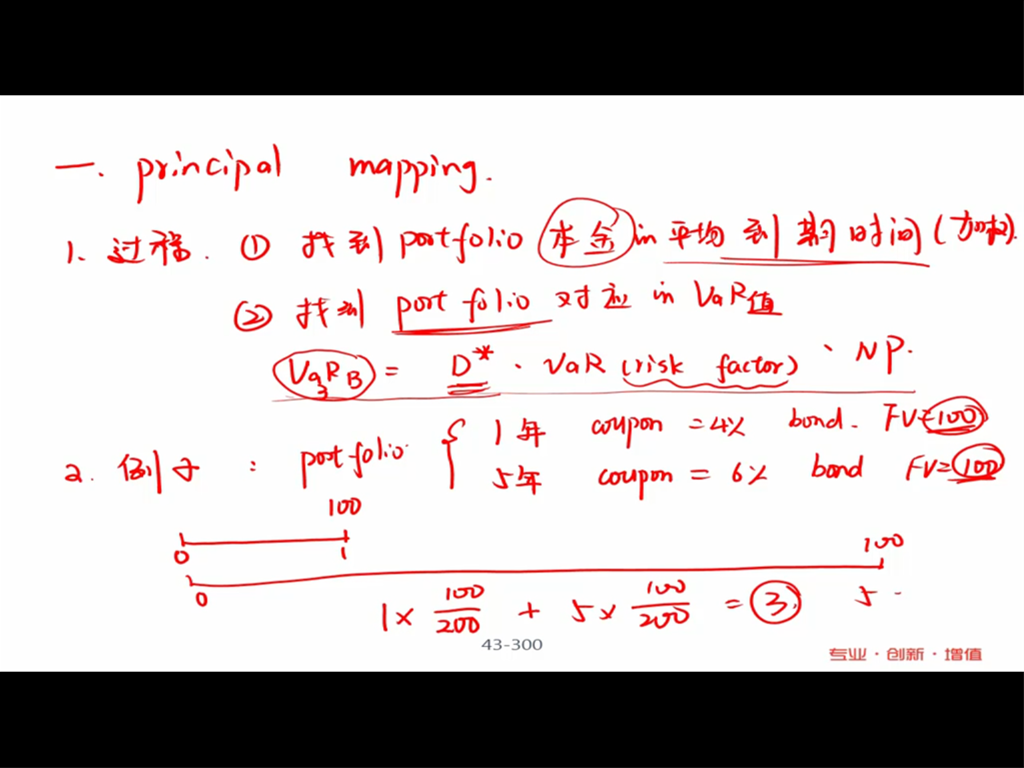 一. principal mapping.
1. 过程. ① 找到 portfolio 本金 in 平均到期时间 (加权).
② 找到 portfolio 对应 in VaR值
VaR B = D* · VaR (risk factor) · NP.
2. 例子 : portfolio { 1年 coupon =4% bond. FV=100
5年 coupon = 6% bond FV=100
100
0 1
100
0 5
1× 100/200 + 5× 100/200 = 3.
43-300
专业·创新·增值